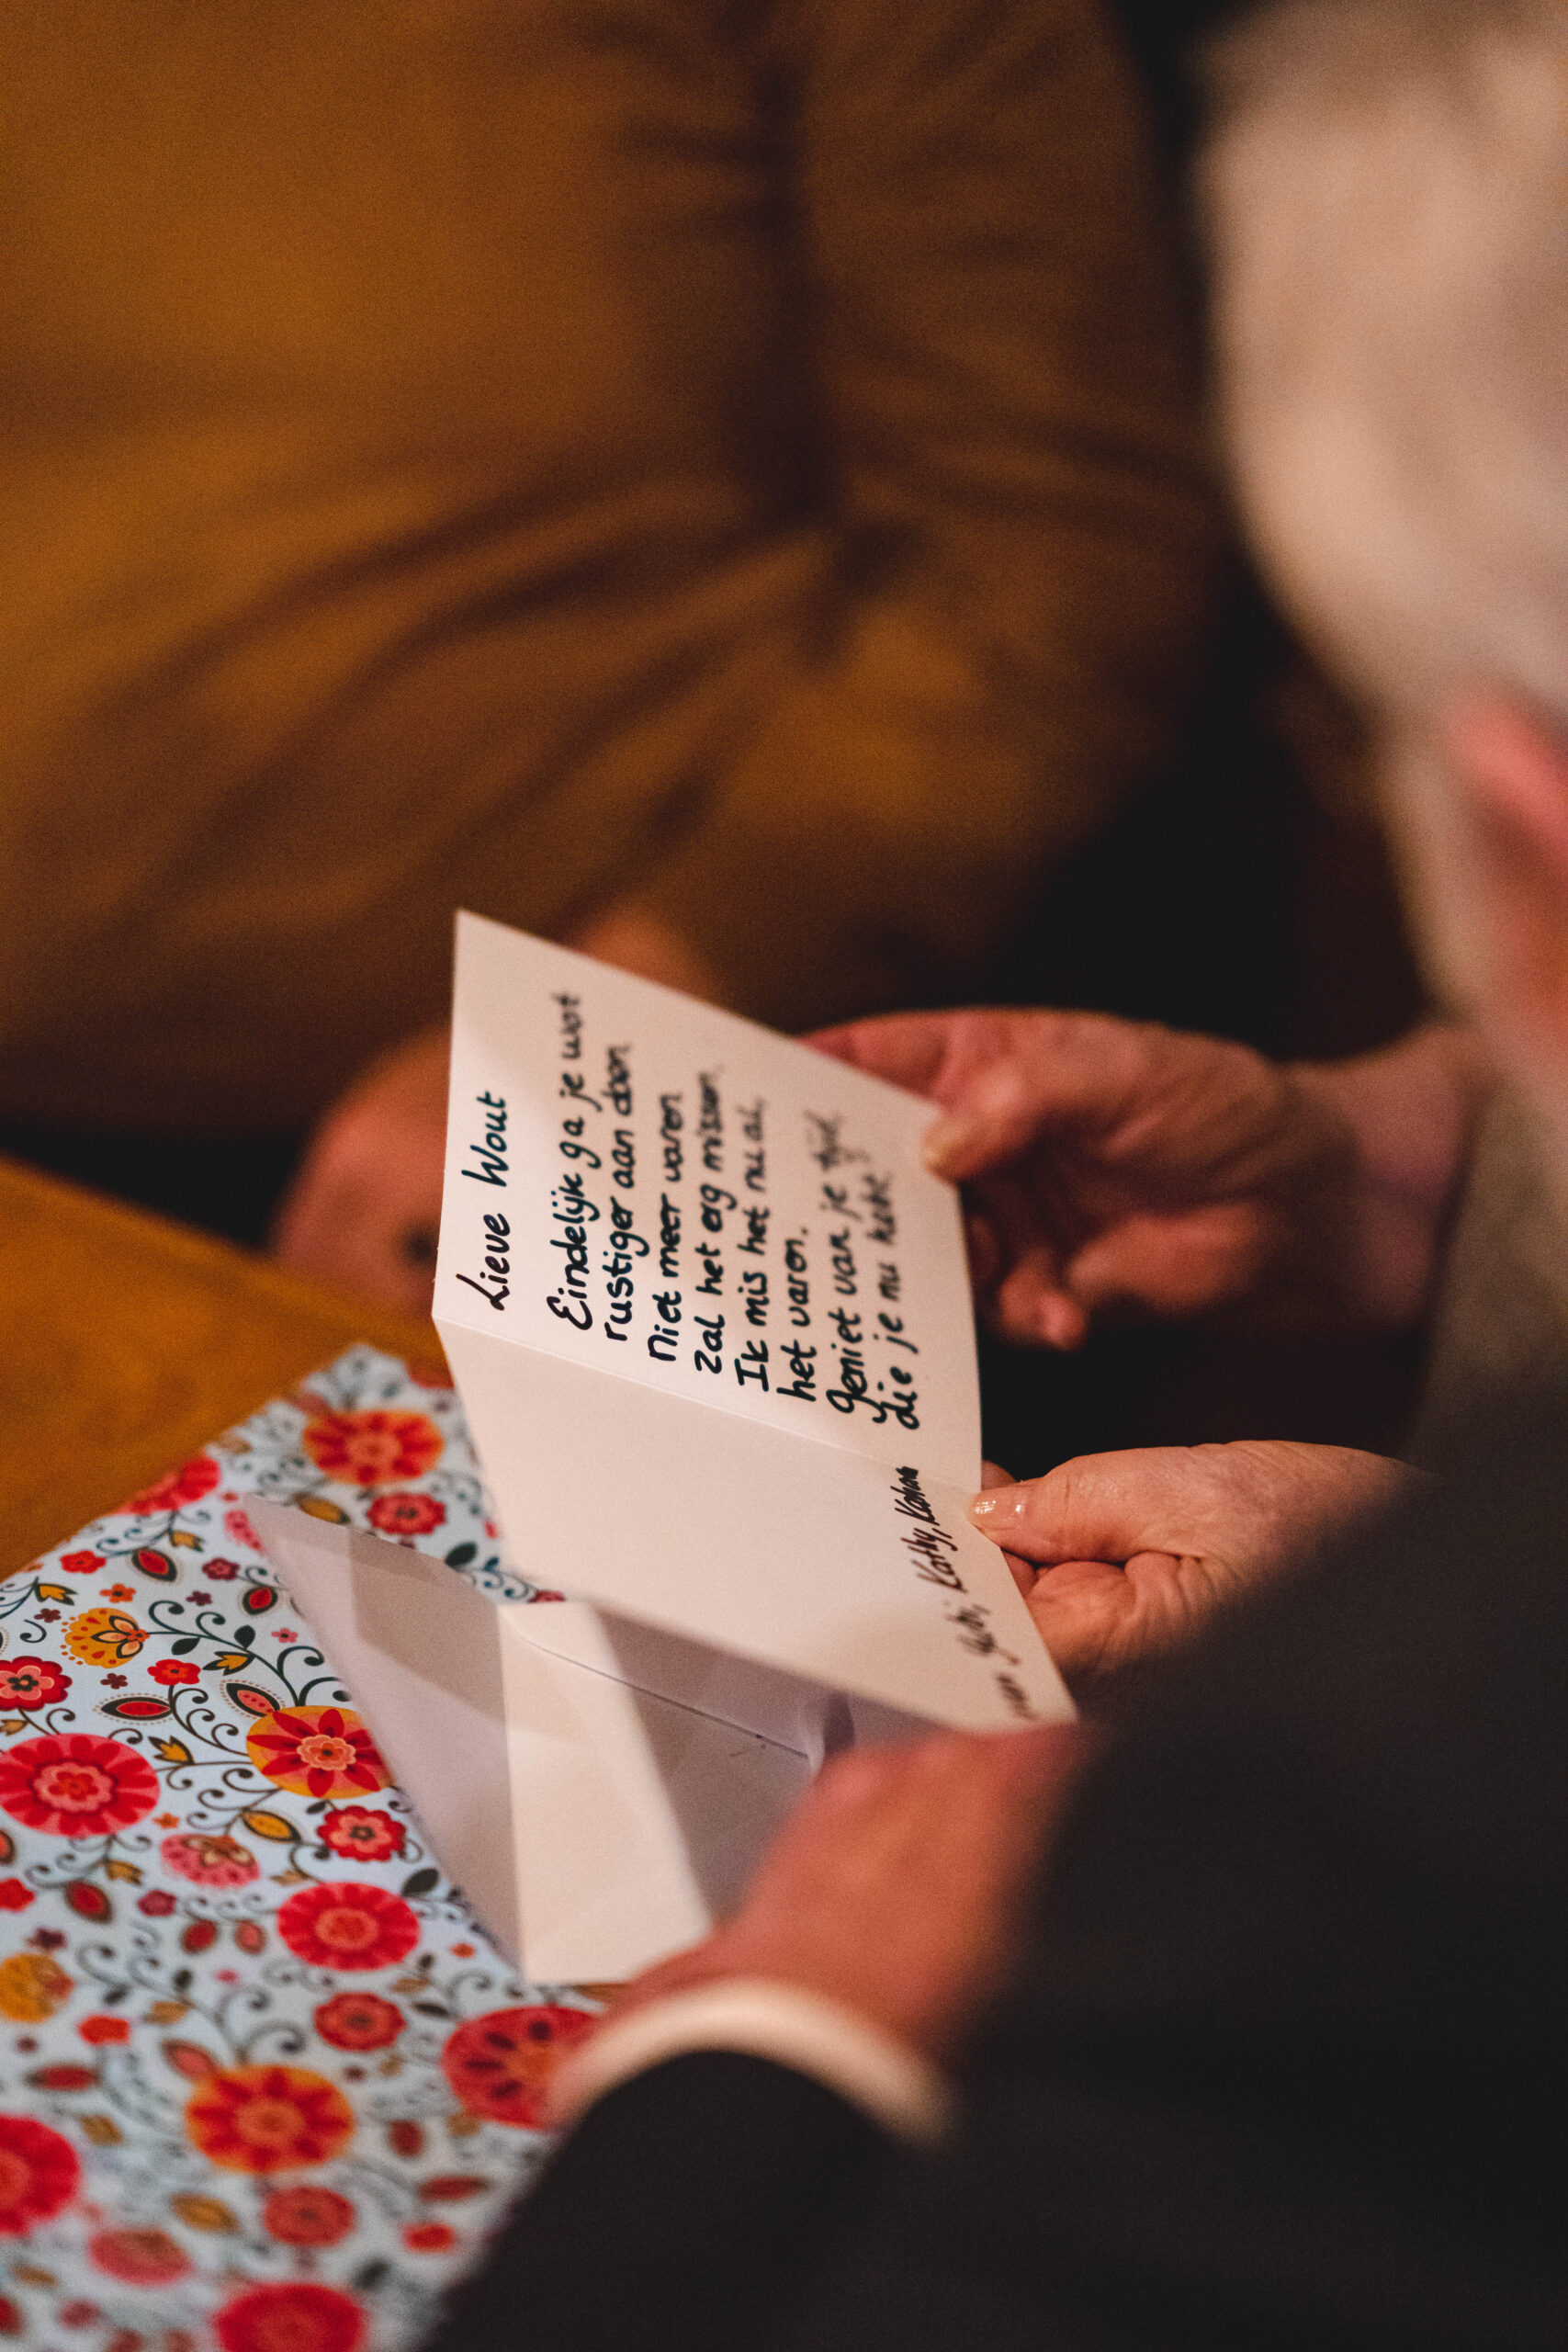 Lieve Wout
Eindelijk ga je wat
rustiger aan doen
Niet meer varen
zal het erg missen.
Ik mis het nu al,
het varen.
Geniet van je tijd,
die je nu hebt
Kathy,